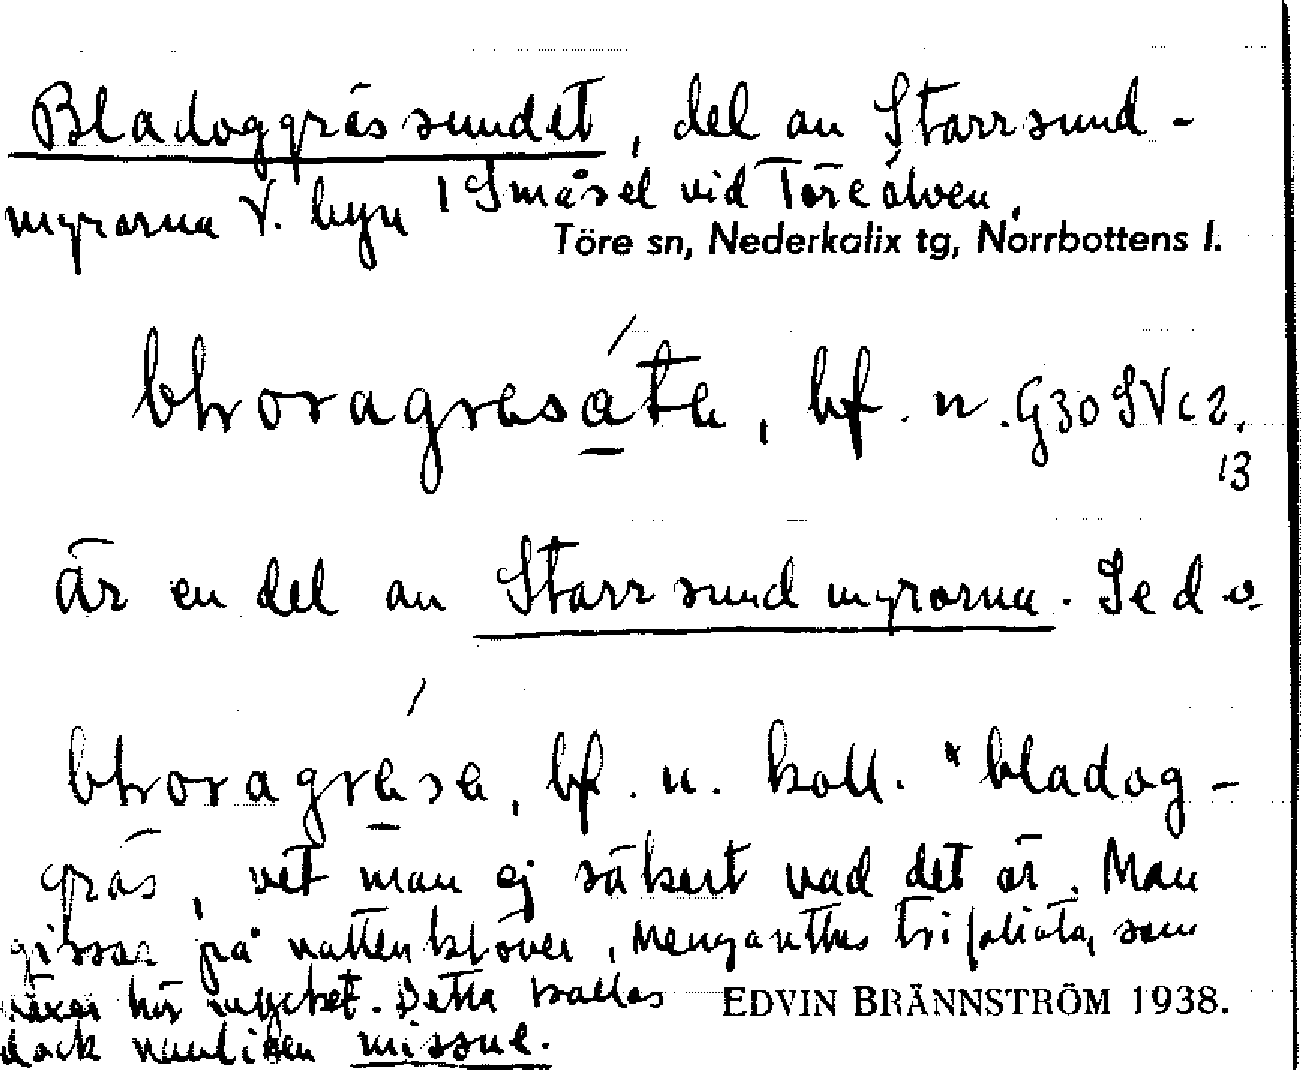 Bladoggrässundet, del av Starrsund-
myrorna V. byn i Småsel vid Töreälven.
Töre sn, Nederkalix tg, Norrbottens l.
bf. n. G30SVc2.
13
är en del av Starrsundmyrorna. Se d o
bf. n. koll. *bladog-
gräs, vet man ej säkert vad det är. Man
gissar på vattenklöver, Menyanthes trifoliata, som
växer här mycket. Detta kallas
EDVIN BRÄNNSTRÖM 1938.
dock vanligen missne.